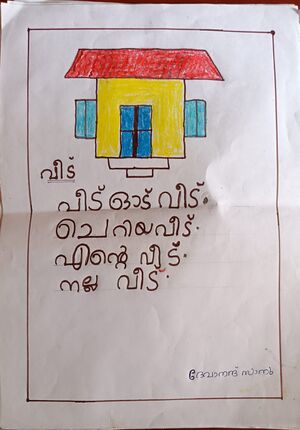 വീട്
വീട് ഓട് വീട്.
ചെറിയവീട്.
എന്റെ വീട്.
നല്ല വീട്
ദേവാനന്ദ് സാനു